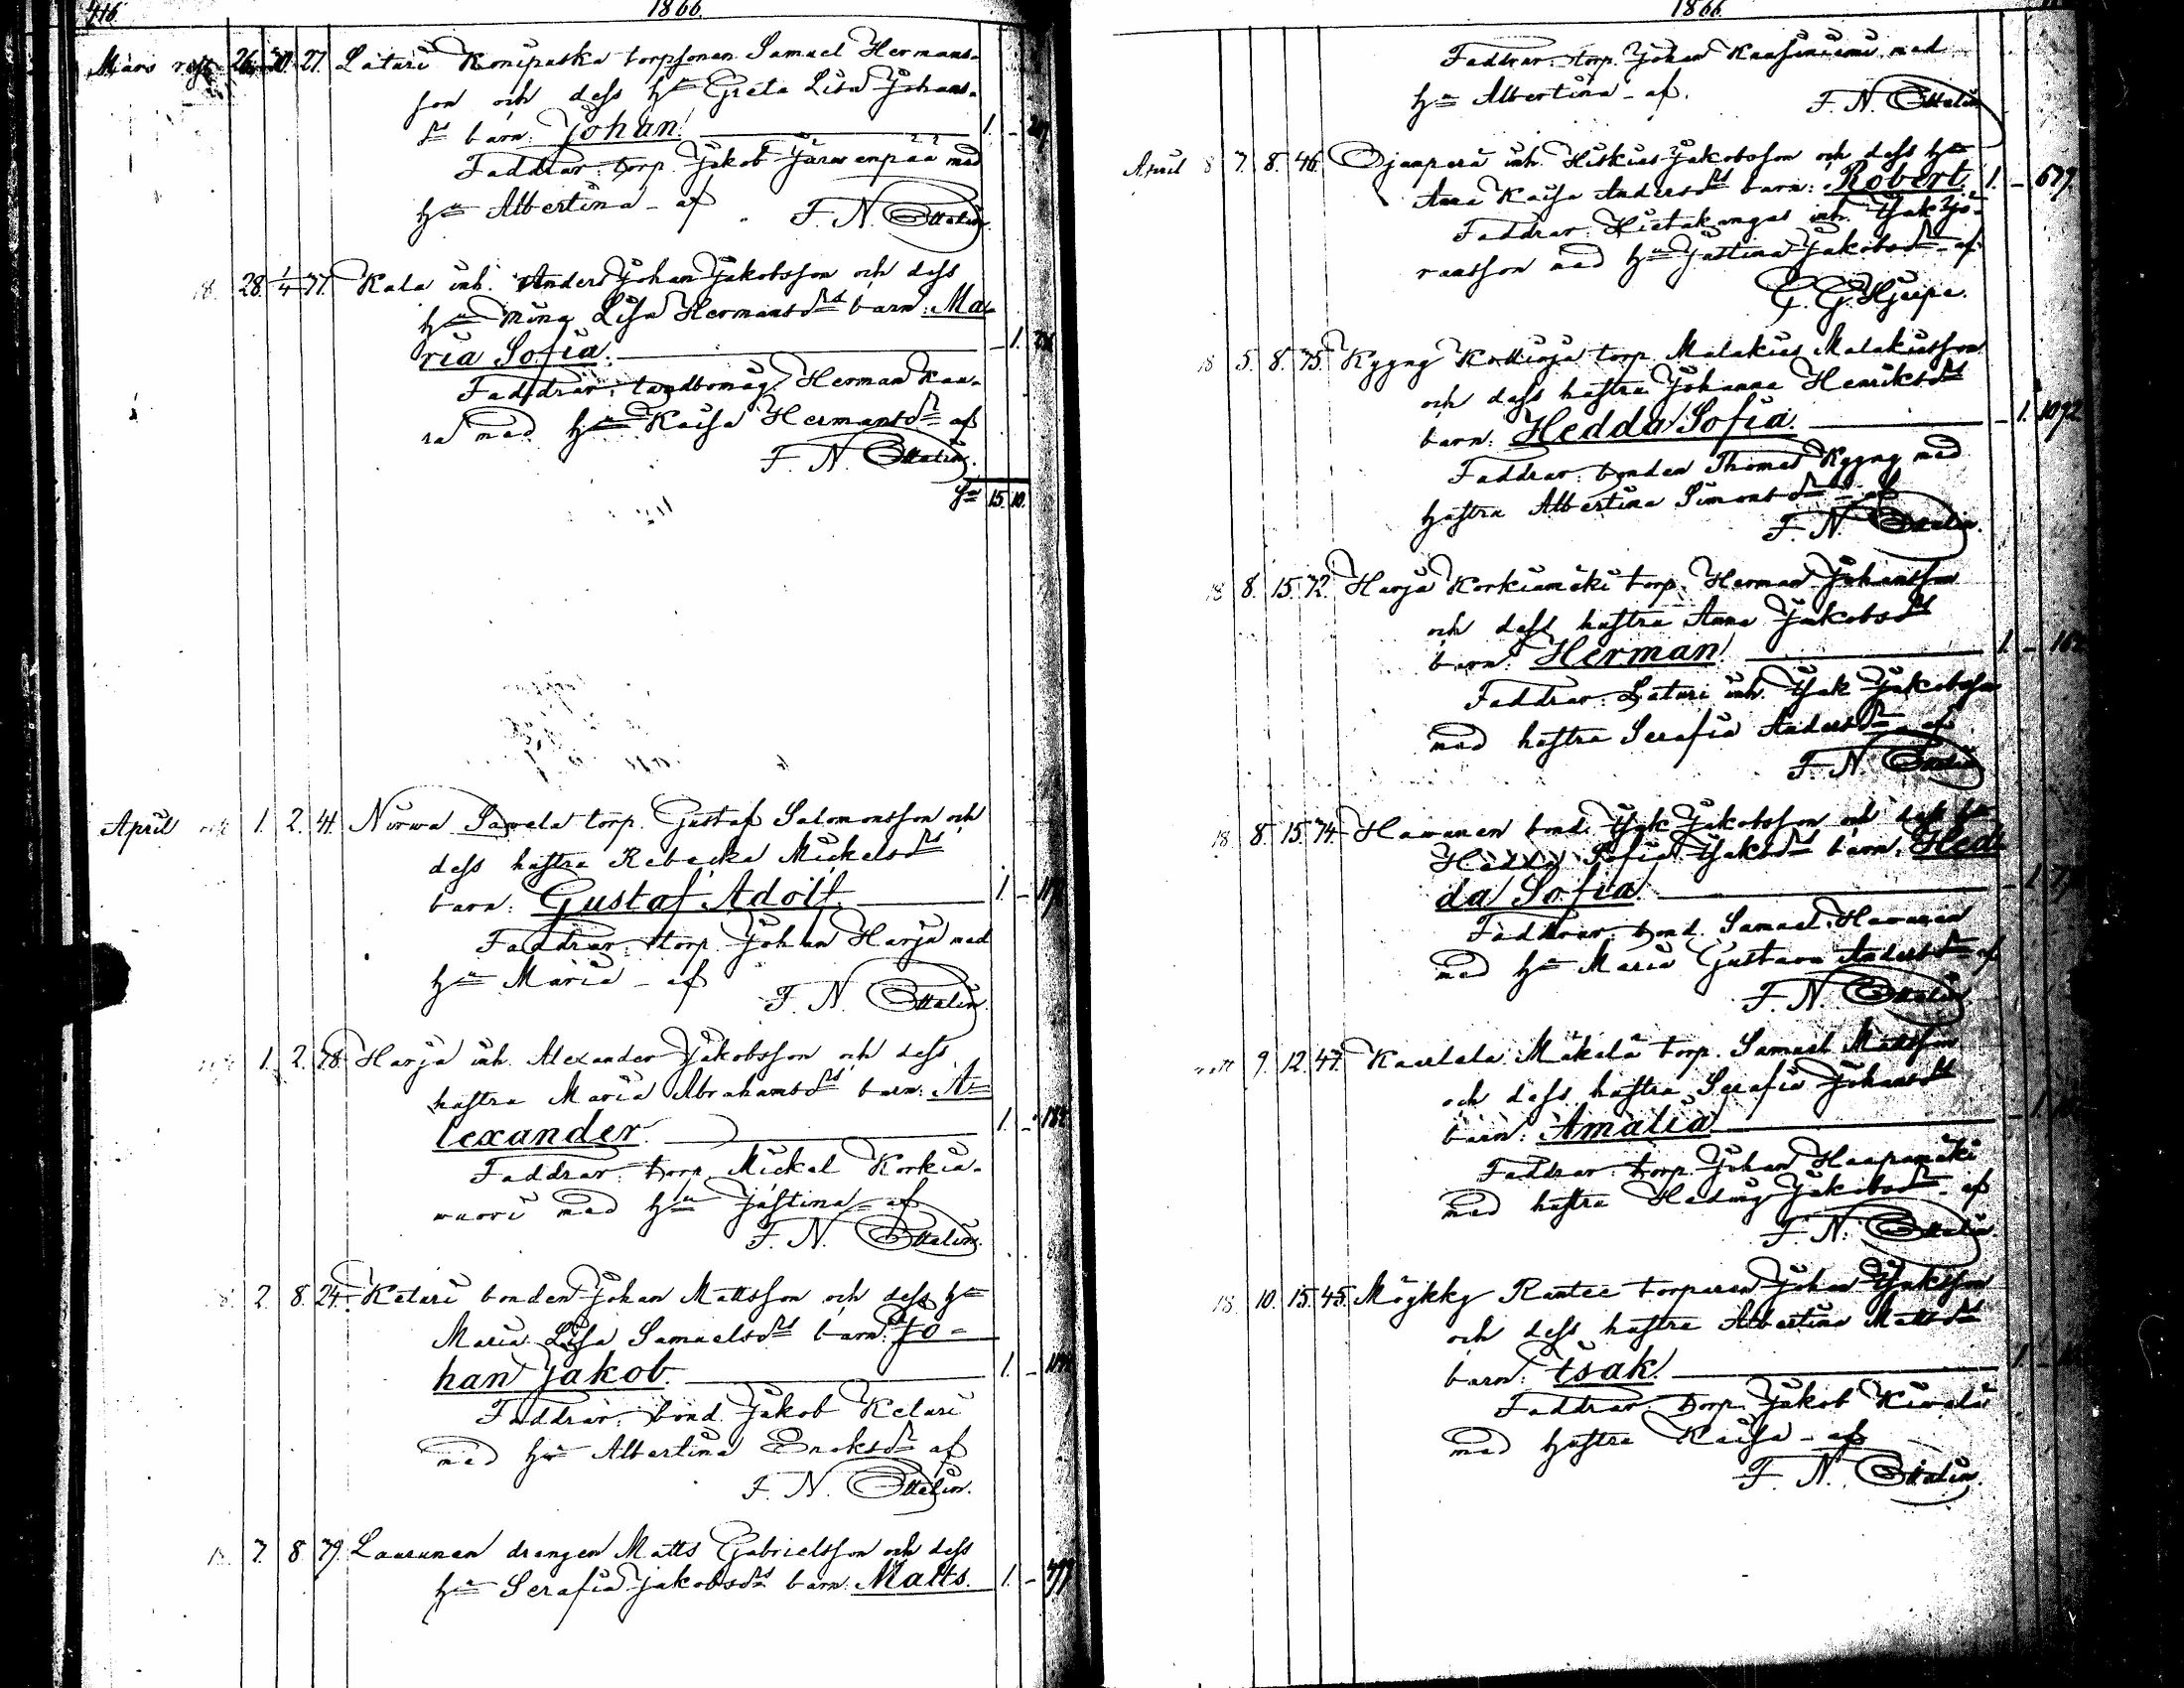 416. 1866.
Mars 26. 30. 27. Latari Konipaska torpsonen Samuel Hermans-
son och dess hu Greta Lisa Johans-
dr barn: Johan. 1. -
Faddrar: torp. Jakob Jarwenpää med
hu Albertina - af F. N. Ottelin.
18. 28. 1/4 77. Kala inh. Anders Johan Jakobsson och dess
hu Mina Lisa Hermansdr barn: Ma-
ria Sofia. - 1.
Faddrar: Herman Kaa-
ra med hu Kaisa Hermansdr af
F. N. Ottelin.
Sa 15. 10.
April 1. 2. 41. Nirwa Sawela torp. Gustaf Salomonsson och
dess hustru Rebecka Mickelsdr
barn: Gustaf Adolf. 1. -
Faddrar: torp. Johan Harja med
hu Maria - af
F. N. Ottelin.
1. 2. 78. Harja inh. Alexander Jakobsson och dess
hustru Maria Abrahamsdr barn: A-
lexander. 1. - 182
Faddrar: torp. Mickel Korkia-
wuori med hu Justina - af
F. N. Ottelin.
2. 8. 24. Ketari bonden Johan Mattsson och dess hu
Maria Lisa Samuelsdr barn: Jo-
han Jakob. 1. -
Faddrar: bond. Jakob Ketari
med hu Albertina Enoksdr af
F. N. Ottelin.
18. 7. 8. 79. Laurunen drengen Matts Gabrielsson och dess
hu Serafia Jakobsdr barn: Matts. 1. - 477
1866.
Faddrar: torp. Johan med
hu Albertina - af. F. N. Ottelin
April 8 7. 8. 46. Ojanperä inh. Hiskias Jakobsson och dess hu
Anna Kaisa Andersdr barn: Robert. 1. - 679.
Faddrar: Hietakangas inh. Isak Jö-
ransson med hu Justina Jakobsdr - af
G. G. Hjerpe.
18 5. 8. 75. Kyyny torp. Malakias Malakiasson
och dess hustru Johanna Henriksdr
barn: Hedda Sofia. - 1. 1072
Faddrar: bonden Thomas Kyyny med
hustru Albertina Simonsdr - af
F. N. Ottelin.
18 8. 15. 72. Harja Korkiamäki torp. Herman Johansson
och dess hustru Anna Jakobsdr
barn: Herman. 1. -
Faddrar: Latari inh. Isak Jakobsson
med hustru Serafia Andersdr - af
F. N. Ottelin
18. 8. 15. 74. Hawunen bond. Isak Jakobsson och dess hu
Hedvig Sofia Isaksdr barn: Hed-
da Sofia. - 1.
Faddrar: bond. Samuel Hawunen
med hu Maria Gustava Andersdr af
F. N. Ottelin.
9. 12. 47. Kaurlela Mäkelä torp. Samuel Mattsson
och dess hustru Serafia Johansdr
barn: Amalia - 1.
Faddrar: torp. Johan Haapamäki
med hustru Hedvig Jakobsdr - af
F. N. Ottelin.
18. 10. 15. 45. Möykky Rantee torparen Johan Isaksson
och dess hustru Albertina Mattsdr
barn: Isak. 1. -
Faddrar: torp. Jakob Kiwelä
med hustru Kaisa - af
F. N. Ottelin.